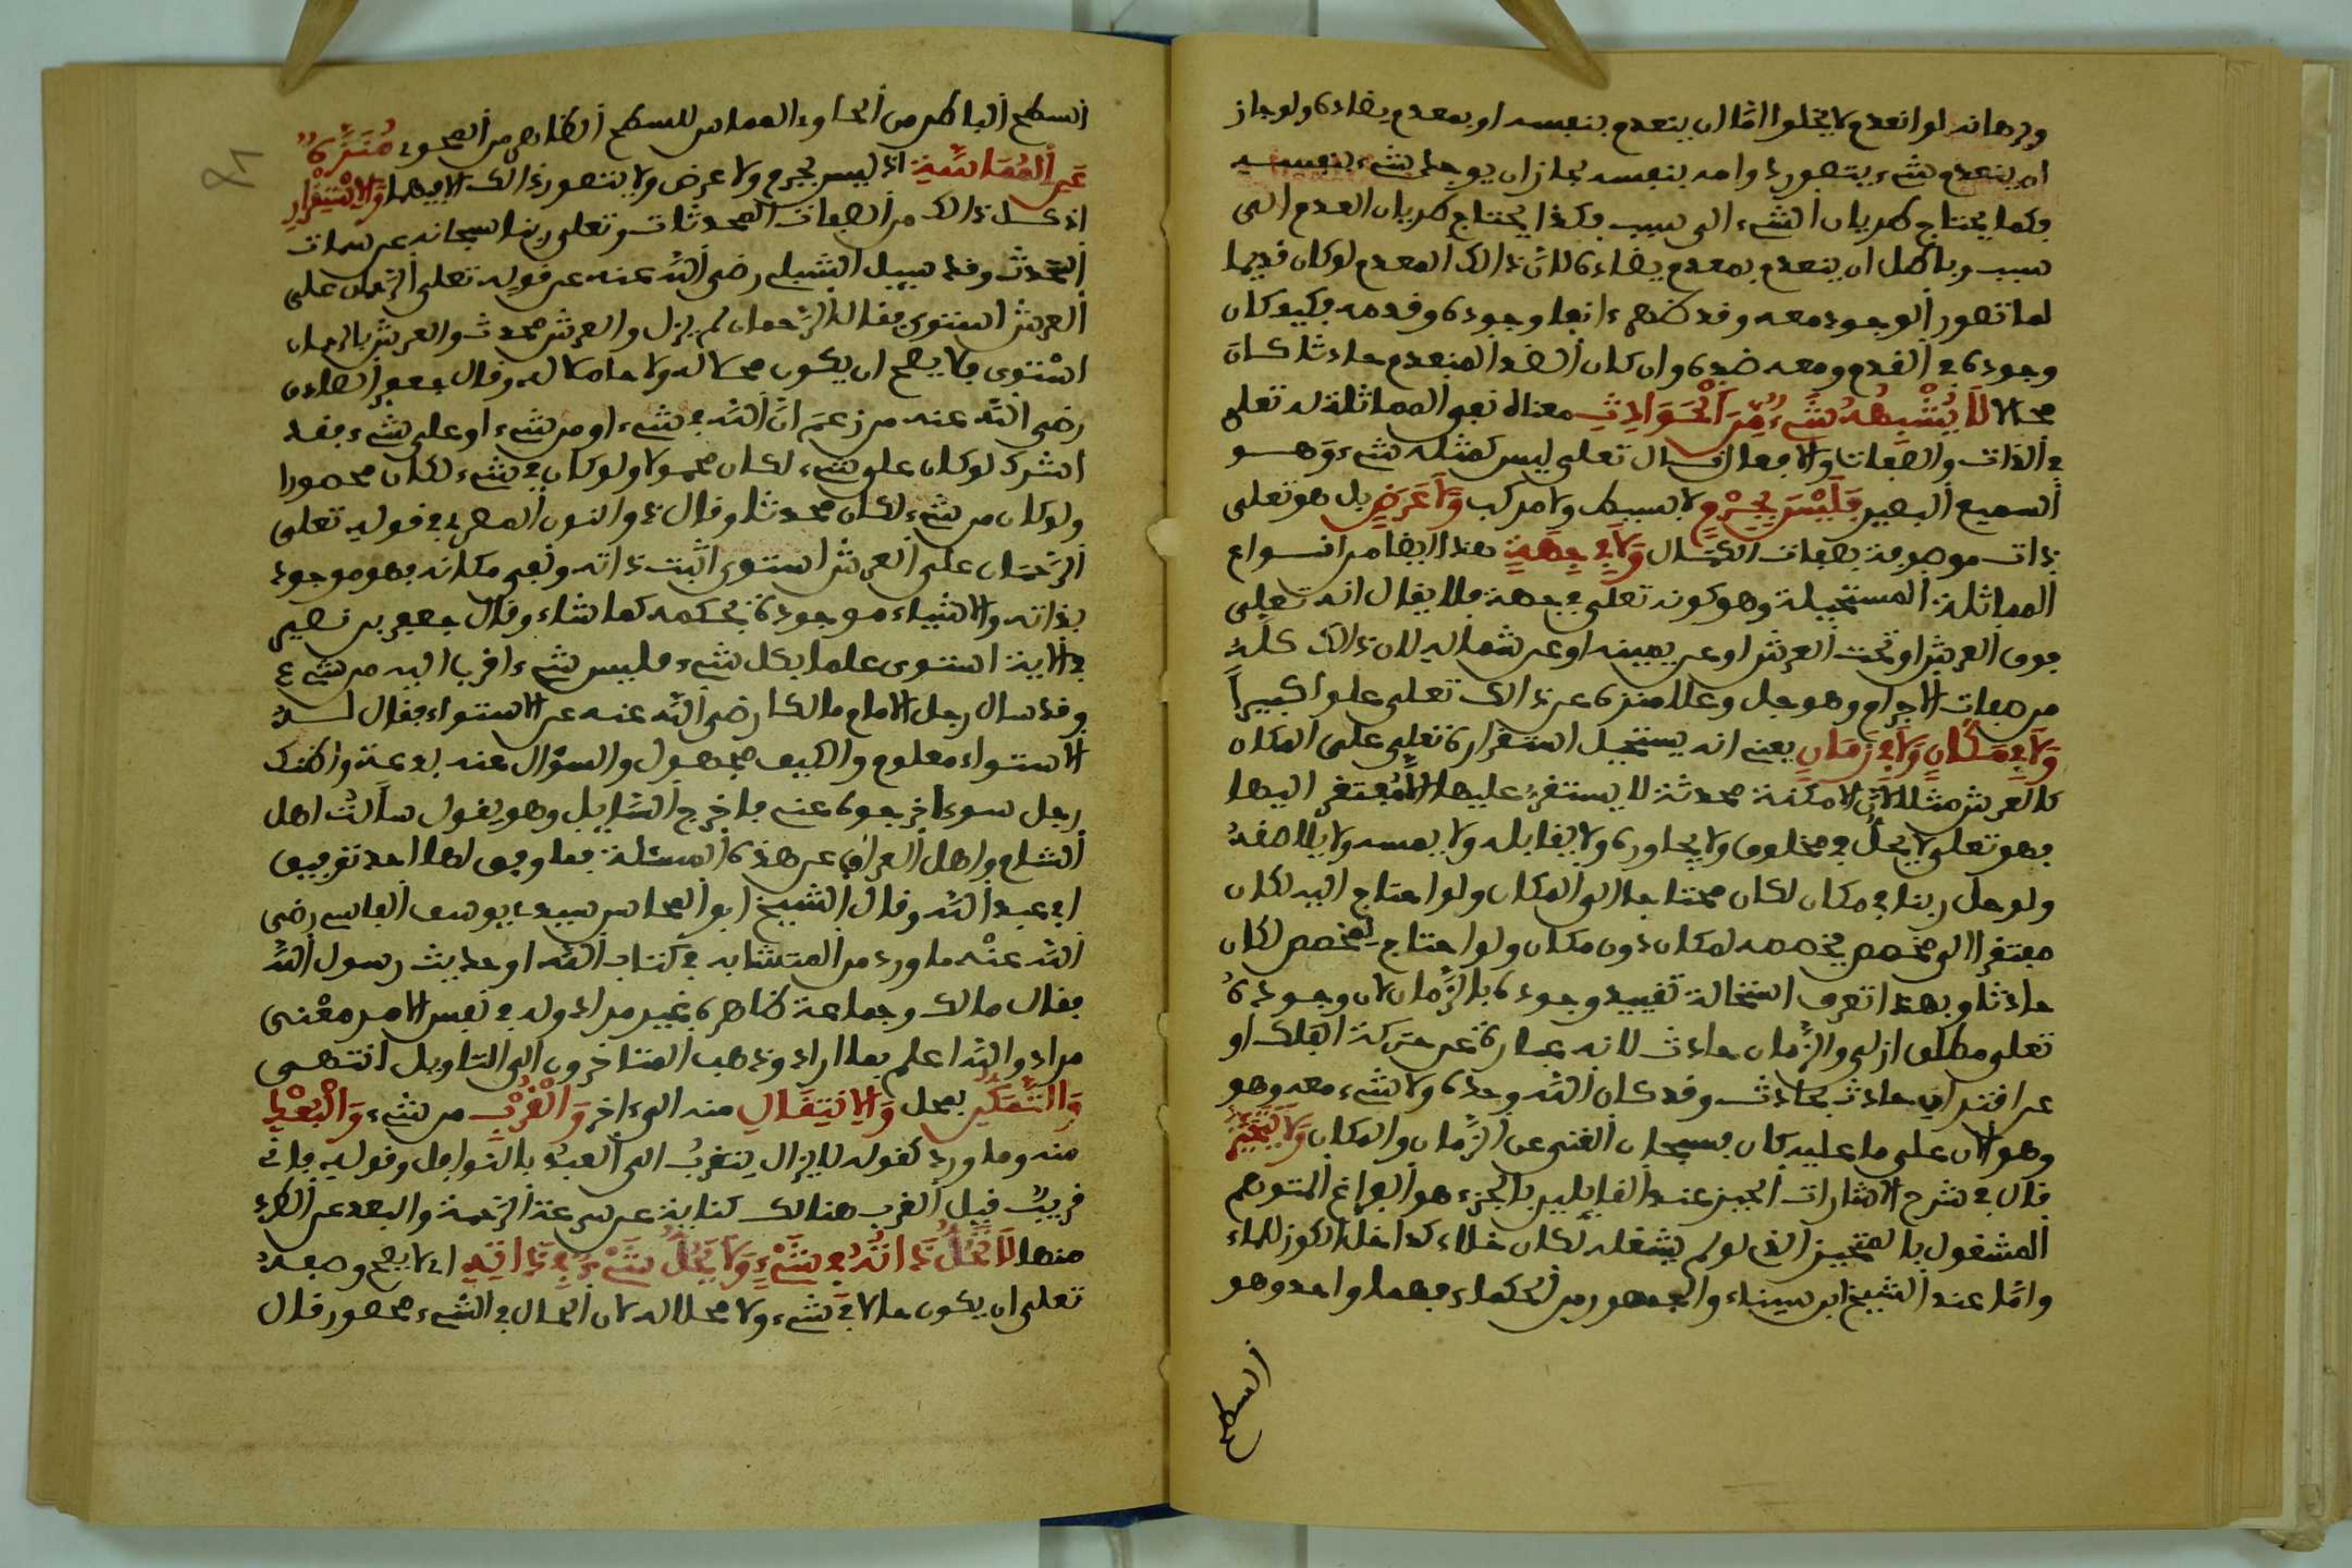 وبرهانه لو انعدم لا يخلوا امّا ان ينعدم بنفسه او بمعدم يضاده ولو جاز
ان ينعدم شيء يتصور دوامه بنفسه لجاز ان يوجد شيء بنفسه
فكما يحتاج طريان الشيء الى سبب فكذا يحتاج طريان العدم الى
سبب وباطل ان ينعدم بمعدم يضاده لانّ ذالك المعدم لو كان قديما
لما تصور الوجود معه وقد ظهر انها وجوده وقدمه فكيف كان
وجوده في القدم ومعه ضده وان كان الضد المنعدم حادثا كان
محالا لَا يُشْبِهُهُ شَيْءٌ مِّنَ اَلْحَوَادِثِ معناه نفي المماثلة له تعلى
في الذات والصفات والافعال قال تعلى ليس كمثله شيء وَهو
السميع البصير فَلَيْسَ بِجِرْمٍ لا بسيط ولا مركب وَلَا عَرَضٍ بل هو تعلى
ذات موصوفة بصفات الكمال وَلَا فِي جِهَةٍ هذا ايضا من انواع
المماثلة المستحيلة وهو كونه تعلى في جهة فلا يقال انه تعلى
فوق العرش او تحت العرش او عن يمينه او عن شماله لان ذالك كله
من صفات الاجرام وهو جل وعلا منزه عن ذالك تعلى علوا كبيراً
وَلَا فِي مَكَانٍ وَلَا فِي زَمَانٍ يعني انه يستحيل استقراره تعلى على المكان
كالعرش مثلا لانّ الامكنة محدثة لا يستقر عليها الا مُفتقر اليها
فهو تعلى لا يحلّ في مخلوق ولا يجاوره ولا يقابله ولا يمسه ولا يلاصقه
ولو حل ربنا في مكان لكان محتاجا الى المكان ولو احتاج اليه لكان
مفتقرا الى مخصص يخصصه لمكان دون مكان ولو احتاج لمخصص لكان
حادثا وبهذا تعرف استحالة تقييد وجوده بالزّمان لان وجوده
تعلى مطلق ازلي والزّمان حادث لانه عبارة عن حركة الفلك او
عن اقتران حادث بحادث وقد كان اللّه وحده ولا شيء معه وهو
وهو الان على ما عليه كان فسبحان الغني عن الزّمان والمكان وَلَا يَتَحَيَّزُ
قال في شرح الاشارات الحيز عند القايلين بالجزء هو الفراغ المتوهم
المشغول بالمتحيز الذي لو لم يشغله لكان خلاء كداخل الكوز للماء
وامّا عند الشيخ ابن سيناء والجمهور من الحكماء فهما واحد وهو
السطح
السطح الباطن من الحاوي المماس للسطح الظاهر من المحوي مُنَزَّهٌ
عَنِ اَلْمُمَاسَّةِ اذ ليس بجرم ولا عرض ولا يتصور ذالك الا فيهما وَالِاسْتِقْرَارِ
اذ كل ذالك من الصفات المحدثات وتعلى ربنا سبحانه عن سمات
الحدث وقد سيل الشبلي رضي اللّه عنه عن قوله تعلى الرّحمان على
العرش استوى فقال الرّحمان لم يزل والعرش محدث والعرش بالرحمان
استوى فلا يصح ان يكون محلا له ولا حاملا له وقال جعفر الصادق
رضي اللّه عنه من زعم انّ اللّه في شيء او من شيء او على شيء فقد
اشرك لو كان على شيء لكان محمولا ولو كان في شيء لكان محصورا
ولو كان من شيء لكان محدثا وقال ذو النون المصري في قوله تعلى
الرّحمان على العرش استوى اثبت ذاته ونفى مكانه فهو موجود
بذاته والاشياء موجودة بحكمه كما شاء وقال جعفر بن نصير
في الاية استوى علما بكل شيء فليس شيء اقرب اليه من شيء
وقد سال رجل الامام مالكا رضي اللّه عنه عن الاستواء فقال له
الاستواء معلوم والكيف مجهول والسؤال عنه بدعة واظنك
رجل سوء اخرجوه عني فاخرج السّايل وهو يقول سألت اهل
الشام واهل العراق عن هذه المسئلة فما وفق لها احد توفيق
ابي عبد اللّه وقال الشيخ ابو المحاسن سيدي يوسف الفاسي رضي
اللّه عنه ما ورد من المتشابه في كتاب اللّه او حديث رسول اللّه
فقال مالك وجماعة ظاهره غير مراد وله في نفس الامر معْنى
مراد واللّه اعلم بما اراد وذهب المتاخرون الى التاويل انتهى
وَالتَّمَكُّنِ بمحل وَالِانتِقَالِ منه الى اخر وَالْقُرْبِ من شيء وَالْبُعْدِ
منه وما ورد كقوله لا يزال يتقربُ الى العبد بالنوافل وقوله فاني
قريبٌ قيل القرب هنالك كناية عن سرعة الرّحمة والبعد عن الطرد
منها لَا تَحُلُّ ذَاتُهُ فِي شَيْءٍ وَلَا يَحُلُّ شَيْءٌ فِي ذَاتِهِ اي لا يصح وصفه
تعلى ان يكون حالا في شيء ولا محلا له لان الحال في الشيء محصور قال